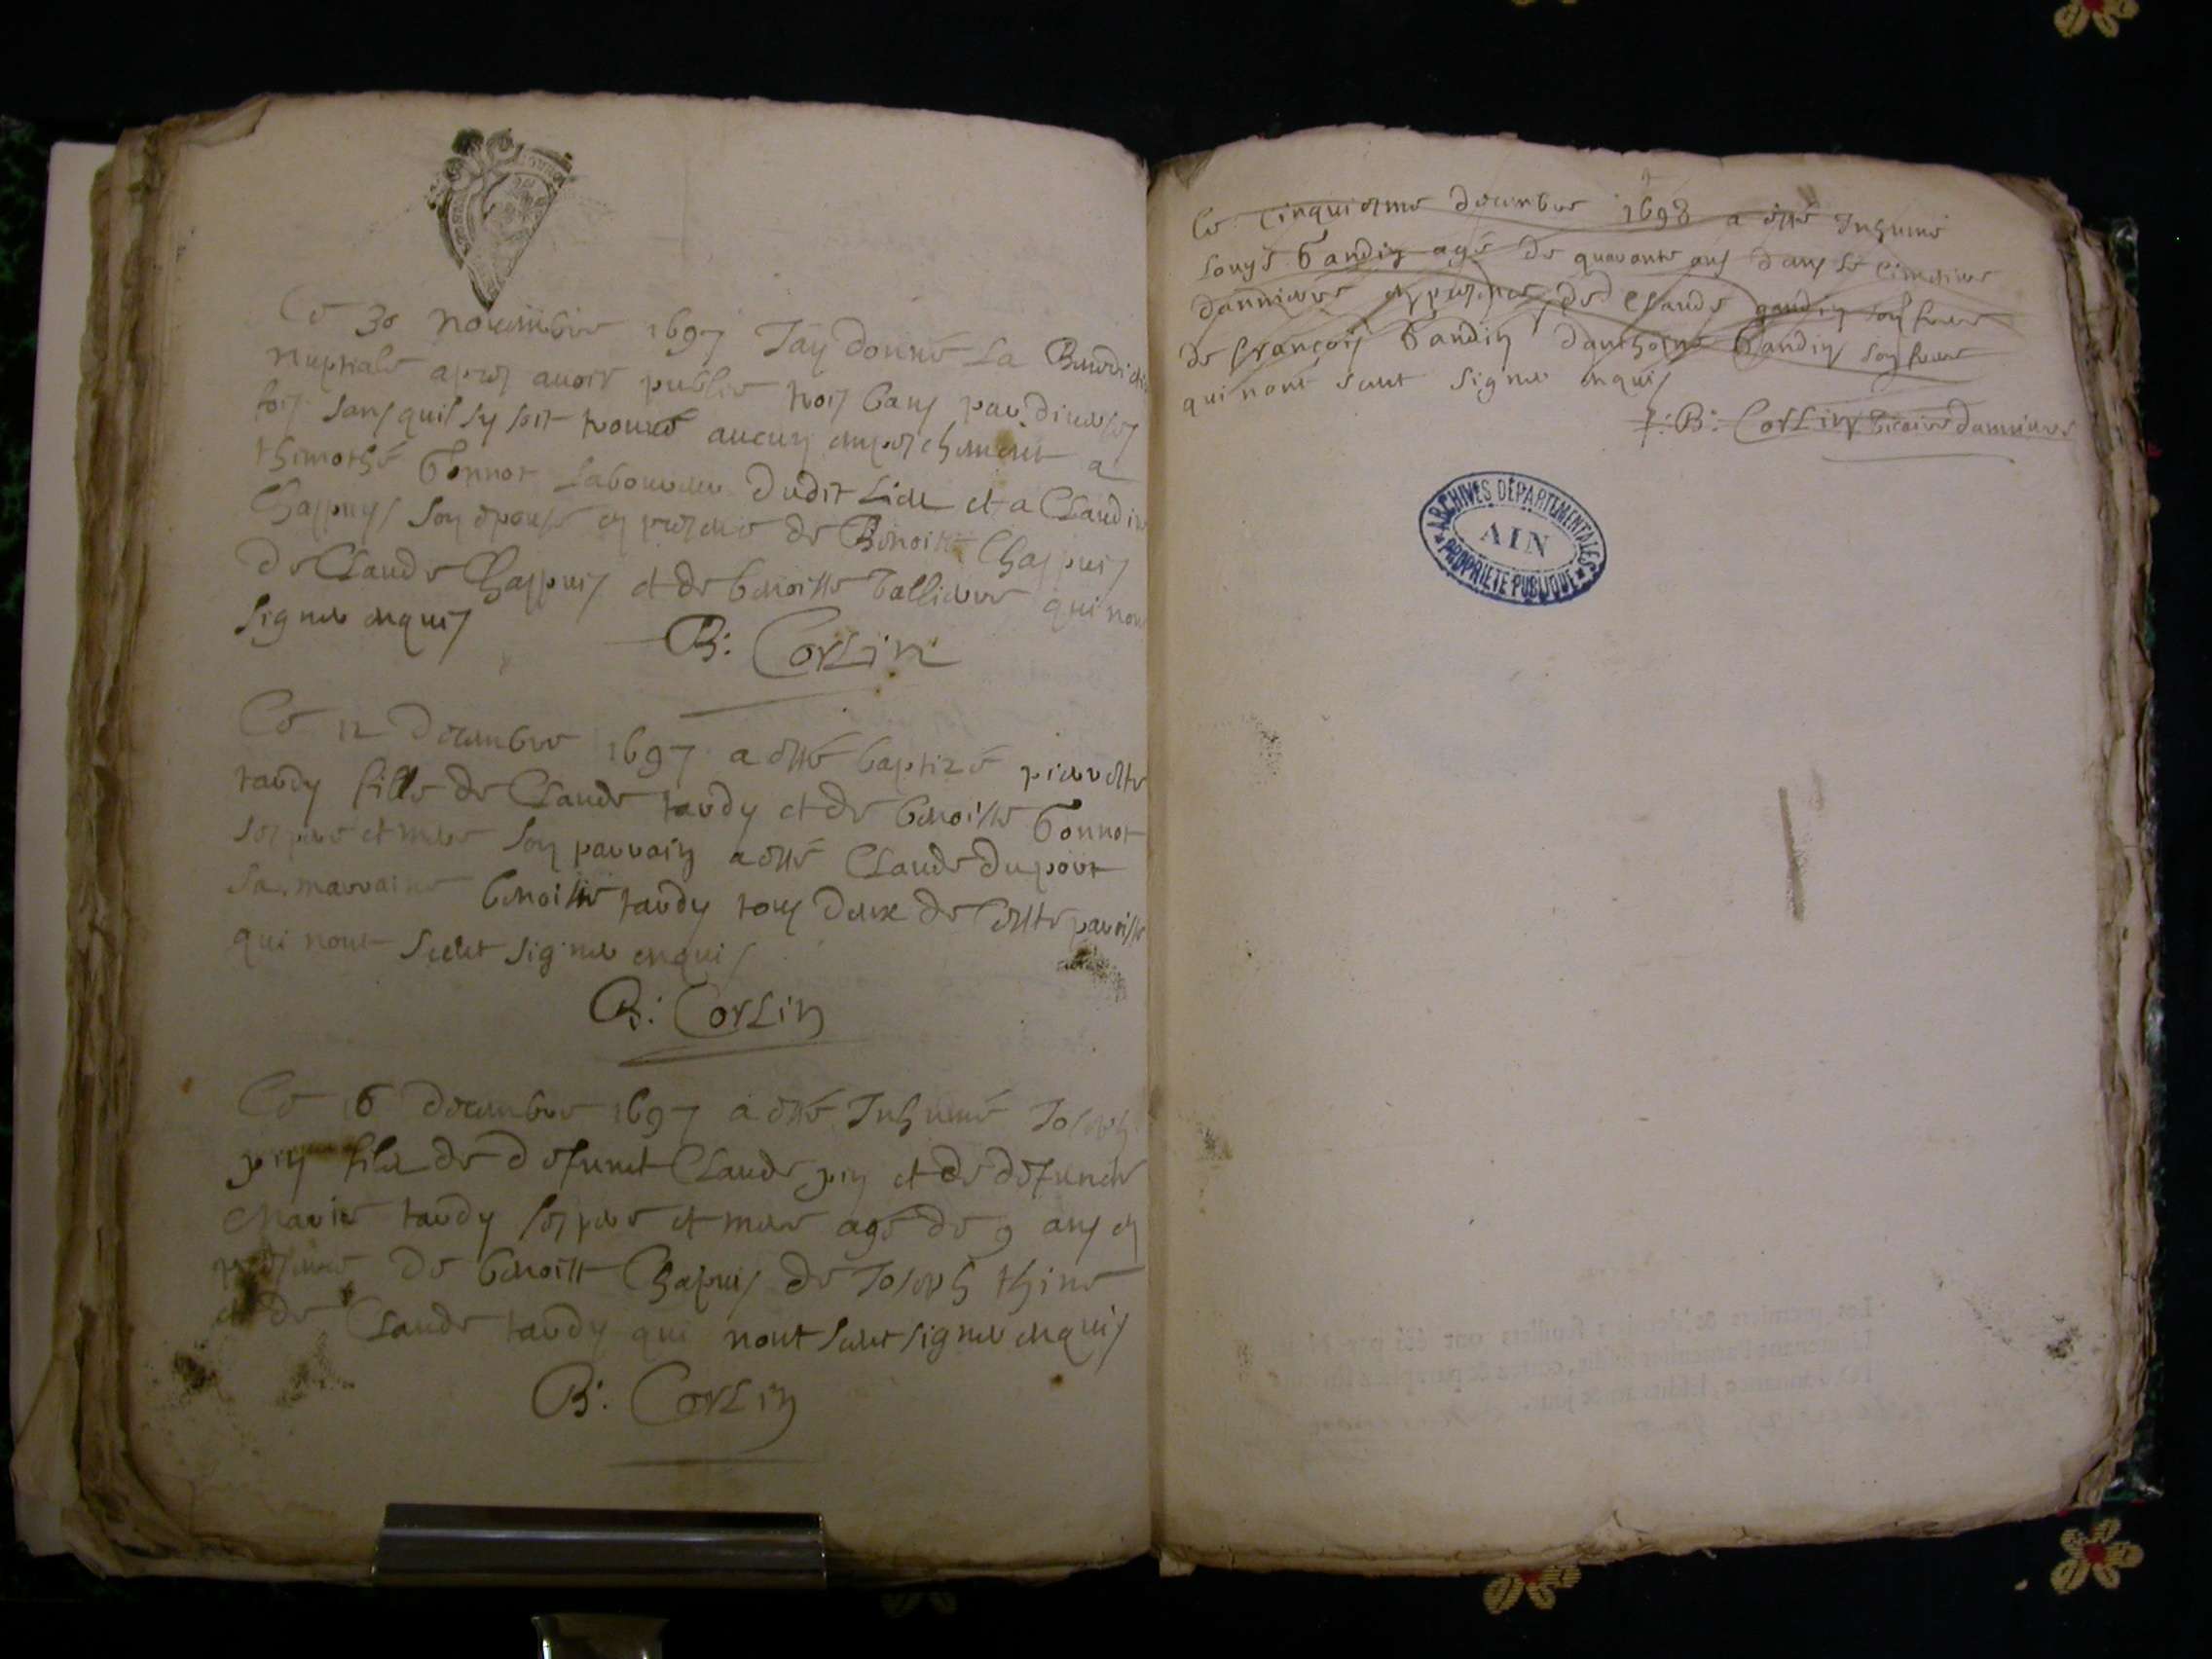 Ce 30 novembre 1697 Jay donné La Benedictio
nuptiale apres avoir publie trois bans par diverses
fois sans quil sy soit trouvé aucun empeschement a
thimothé bonnot Laboureur dudit Lieu et a Claudine
Chappuys son epouse en presence de Benoist Chappuis
de Claude Chappuis et de benoiste valliere qui nont
signer enquis
B: Corlin
Ce 12 decembre 1697 a esté baptizé pierrette
tardy fille de Claude tardy et de benoiste bonnot
ses pere et mere son parrain a esté Claude dupont
sa marraine benoiste tardy tous deux de Cette parroisse
qui nont sceut signer enquis
B: Corlin
Ce 16 decembre 1697 a esté Inhumé Joseph
pin fils de defunct Claude pin et de defuncte
Marie tardy ses pere et mere agé de 9 ans en
presence de benoist Chapuis de Joseph thine
et de Claude tardy qui nont sceut signer enquis
B: Corlin
Ce cinquiesme decembre 1698 a esté Inhumé
Louys Gandin agé de quarante ans dans le cimetiere
danniere en presence de Claude gandin son frere
de françois Gandin danthoine Gandin son frere
qui nont sceut signer enquis
B: Corlin vicaire danniere
ARCHIVES DÉPARTEMENTALES
AIN
PROPRIÉTÉ PUBLIQUE